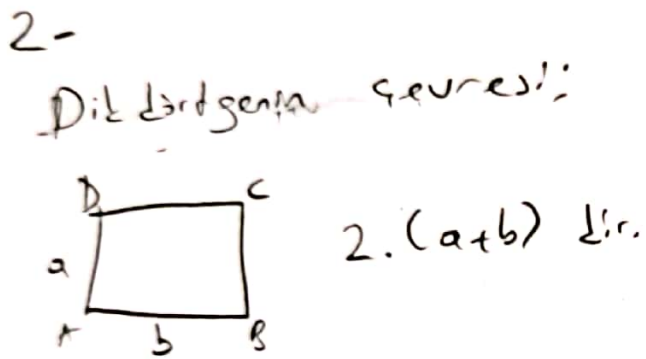 2-
Dikdörtgenin çevresi:
D C
a 2.(a+b) dir.
A b B